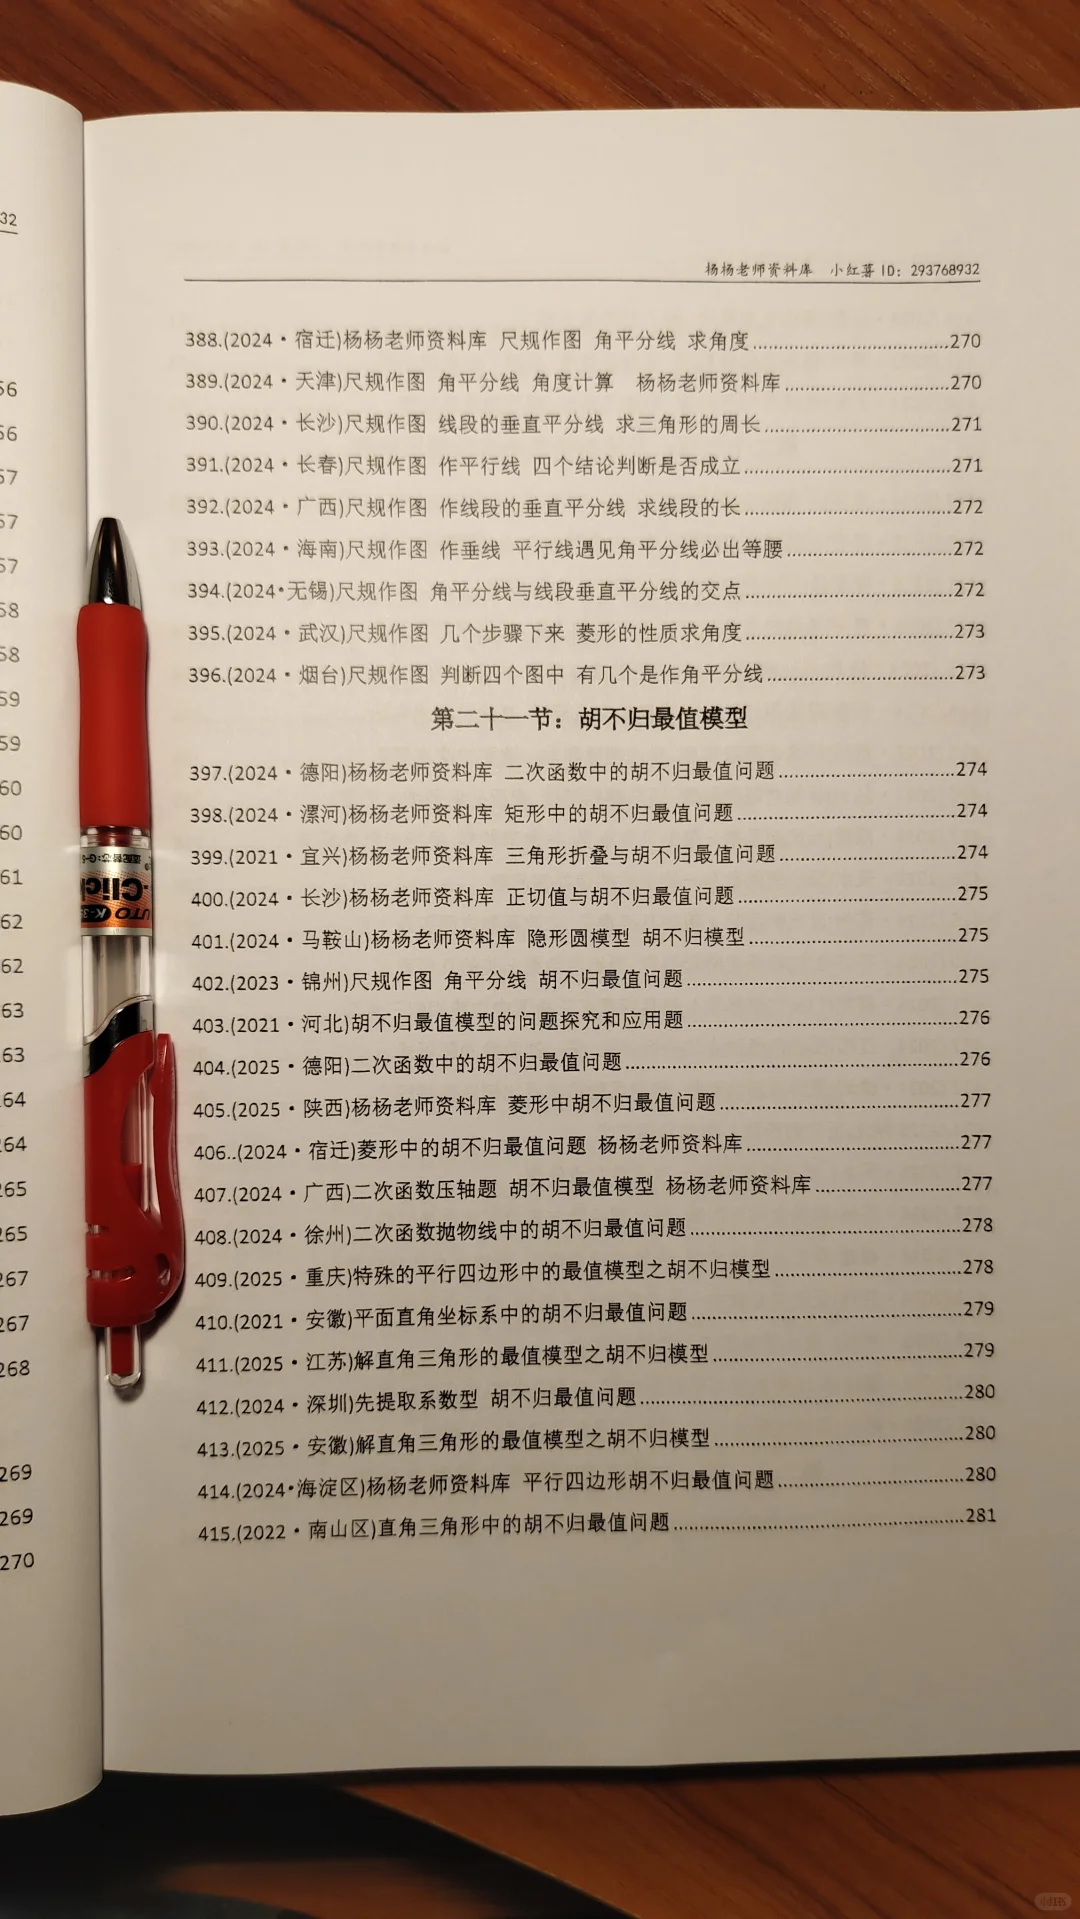 32
56
56
57
57
57
58
58
59
59
60
60
61
62
62
63
63
64
64
65
265
267
267
268
269
269
270
杨杨老师资料库 小红薯 ID: 293768932
388.(2024·宿迁)杨杨老师资料库 尺规作图 角平分线 求角度……270
389.(2024·天津)尺规作图 角平分线 角度计算 杨杨老师资料库……270
390.(2024·长沙)尺规作图 线段的垂直平分线 求三角形的周长……271
391.(2024·长春)尺规作图 作平行线 四个结论判断是否成立……271
392.(2024·广西)尺规作图 作线段的垂直平分线 求线段的长……272
393.(2024·海南)尺规作图 作垂线 平行线遇见角平分线必出等腰……272
394.(2024·无锡)尺规作图 角平分线与线段垂直平分线的交点……272
395.(2024·武汉)尺规作图 几个步骤下来 菱形的性质求角度……273
396.(2024·烟台)尺规作图 判断四个图中 有几个是作角平分线……273
第二十一节：胡不归最值模型
397.(2024·德阳)杨杨老师资料库 二次函数中的胡不归最值问题……274
398.(2024·漯河)杨杨老师资料库 矩形中的胡不归最值问题……274
399.(2021·宜兴)杨杨老师资料库 三角形折叠与胡不归最值问题……274
400.(2024·长沙)杨杨老师资料库 正切值与胡不归最值问题……275
401.(2024·马鞍山)杨杨老师资料库 隐形圆模型 胡不归模型……275
402.(2023·锦州)尺规作图 角平分线 胡不归最值问题……275
403.(2021·河北)胡不归最值模型的问题探究和应用题……276
404.(2025·德阳)二次函数中的胡不归最值问题……276
405.(2025·陕西)杨杨老师资料库 菱形中胡不归最值问题……277
406..(2024·宿迁)菱形中的胡不归最值问题 杨杨老师资料库……277
407.(2024·广西)二次函数压轴题 胡不归最值模型 杨杨老师资料库……277
408.(2024·徐州)二次函数抛物线中的胡不归最值问题……278
409.(2025·重庆)特殊的平行四边形中的最值模型之胡不归模型……278
410.(2021·安徽)平面直角坐标系中的胡不归最值问题……279
411.(2025·江苏)解直角三角形的最值模型之胡不归模型……279
412.(2024·深圳)先提取系数型 胡不归最值问题……280
413.(2025·安徽)解直角三角形的最值模型之胡不归模型……280
414.(2024·海淀区)杨杨老师资料库 平行四边形胡不归最值问题……280
415.(2022·南山区)直角三角形中的胡不归最值问题……281